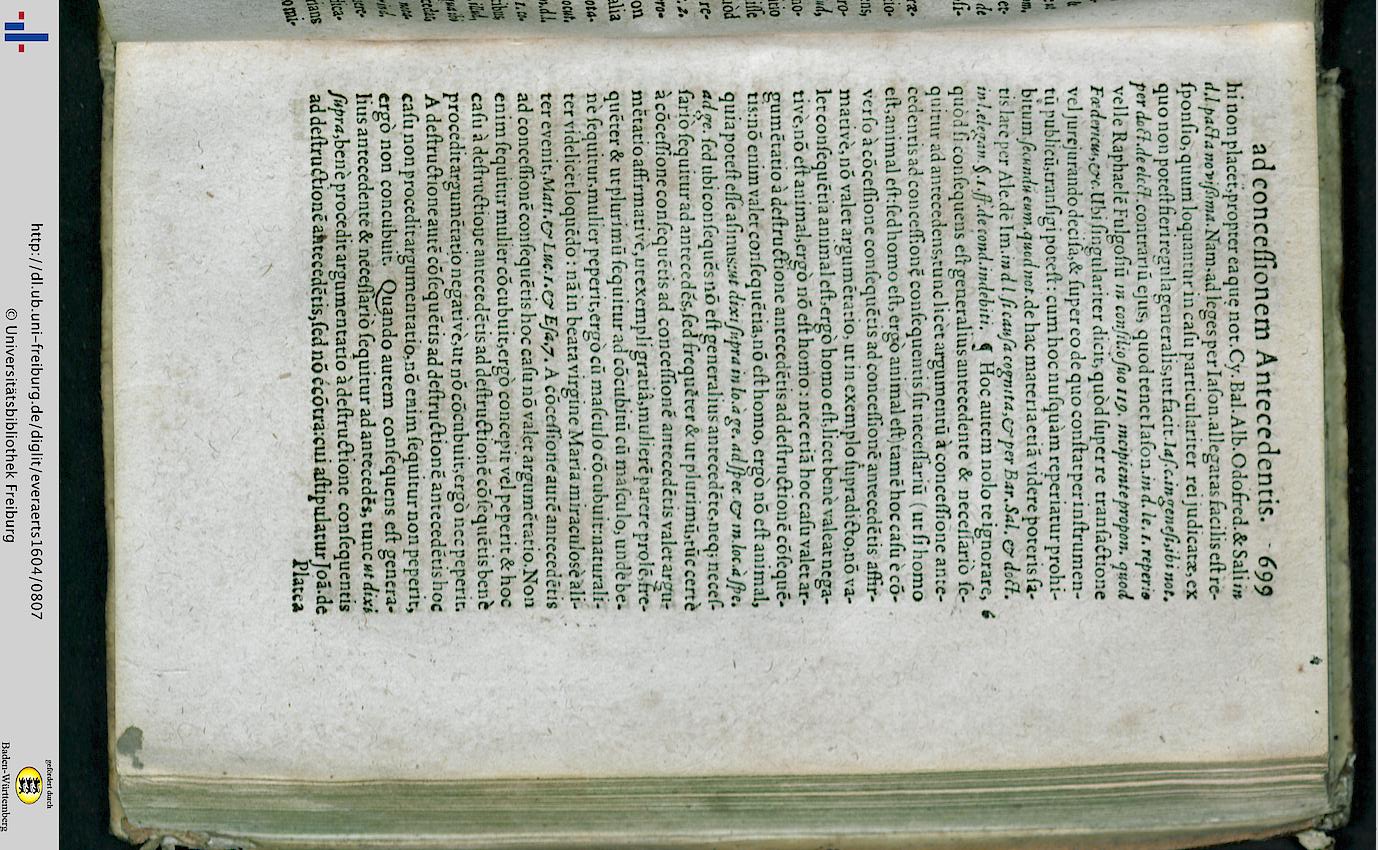 ad conceſſionem Antecedentis. 699
hi non placet, propter ea quę not. Cy. Bal. Alb. Olofred. & Sali. in
d. l. pacta noviſſima. Nam ad leges per Iaſon. allegatas facilis eſt re-
ſponſio, quum loquantur in caſu particulariter rei judicatæ, ex
quo non poteſt fieri regula generalis, ut facit.
velle Raphaelē Fulgoſiū in conſilio ſuo 119. incipiente propom. quod
Fœdericus, &c. Ubi ſingulariter dicit, quòd ſuper re tranſactione
vel jurejurando deciſa, & ſuper eo de quo conſtat per inſtrumen-
tū publicū, tranſigi poteſt: cum hoc nuſquam reperiatur prohi-
bitum, ſecundū eum. quod not. de hac materia etiā videre poteris ſa-
tis latè per Ale. de Im. in d. l. ſi cauſa cognita, & per Bar. Sal. & doct.
in l. elegan. § 1. ff. de cond. indebiti. ¶ Hoc autem nolo te ignorare, 6
quòd ſi conſequens eſt generalius antecedente & neceſſariò ſe-
quitur ad antecedens, tunc licèt argumentū à conceſſione ante-
cedentis ad conceſſionē conſequentis ſit neceſſariū (ut ſi homo
eſt, animal eſt: ſed homo eſt, ergo animal eſt) tamē hoc caſu è cō-
verſo à cōceſſione conſequētis ad conceſſionē antecedētis affir-
mativè, nō valet argumētatio, ut in exemplo ſupradicto, nō va-
let conſequētia animal eſt, ergò homo eſt, licet benè valeat nega-
tivè, nō eſt animal, ergo nō eſt homo: nec etiā hoc caſu valet ar-
gumētatio à deſtructione antecedētis ad deſtructionē cōſequē-
tis: nō enim valet conſequētia, nō eſt homo, ergò nō eſt animal,
quia poteſt eſſe aſinus: ut dixi ſupra in lo. à ge. ad ſpec. & in loc. à ſpe.
ad ge. ſed ubi conſequēs nō eſt generalius antecedēte, neq; neceſ-
ſario ſequitur ad antecedēs, ſed frequēter & ut plurimū, tūc certè
à cōceſſione conſequētis ad conceſſionē antecedētis valet argu-
mētatio affirmativè, ut exempli gratiâ, mulierē parere prolē, fre-
quēter & ut plurimū ſequitur ad cōcubitū cū maſculo, unde be-
ne ſequitur, mulier peperit, ergò cū maſculo cōcubuit: naturali-
ter videlicet loquēdo: nā in beata virgine Maria miraculosè ali-
ter evenit, Matt. & Luc. 1. & Eſa. 7. A cōceſſione autē antecedētis
ad conceſſionē conſequētis hoc caſu nō valet argumētatio. Non
enim ſequitur mulier cōcubuit, ergò concepit vel peperit & hoc
caſu à deſtructione antecedētis ad deſtructionē cōſequētis benè
procedit argumētatio negativè, ut nō cōcubuit, ergò nec peperit.
A deſtructione autē cōſequētis ad deſtructionē antecedētis hoc
caſu non procedit argumentatio, nō enim ſequitur non peperit,
ergò non concubuit. Quando autem conſequens eſt genera-
lius antecedente & neceſſariò ſequitur ad antecedēs, tunc ut dixi
ſupra, benè procedit argumentatio à deſtructione conſequentis
ad deſtructionē antecedētis, ſed nō ècōtra: cui aſtipulatur Joā. de
Platea
http://dl.ub.uni-freiburg.de/diglit/everaerts1604/0807
© Universitätsbibliothek Freiburg
gefördert durch
Baden-Württemberg